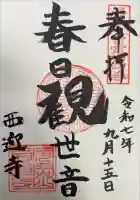 奉拝
令和七年
九月十五日
春日観世音
西迎寺